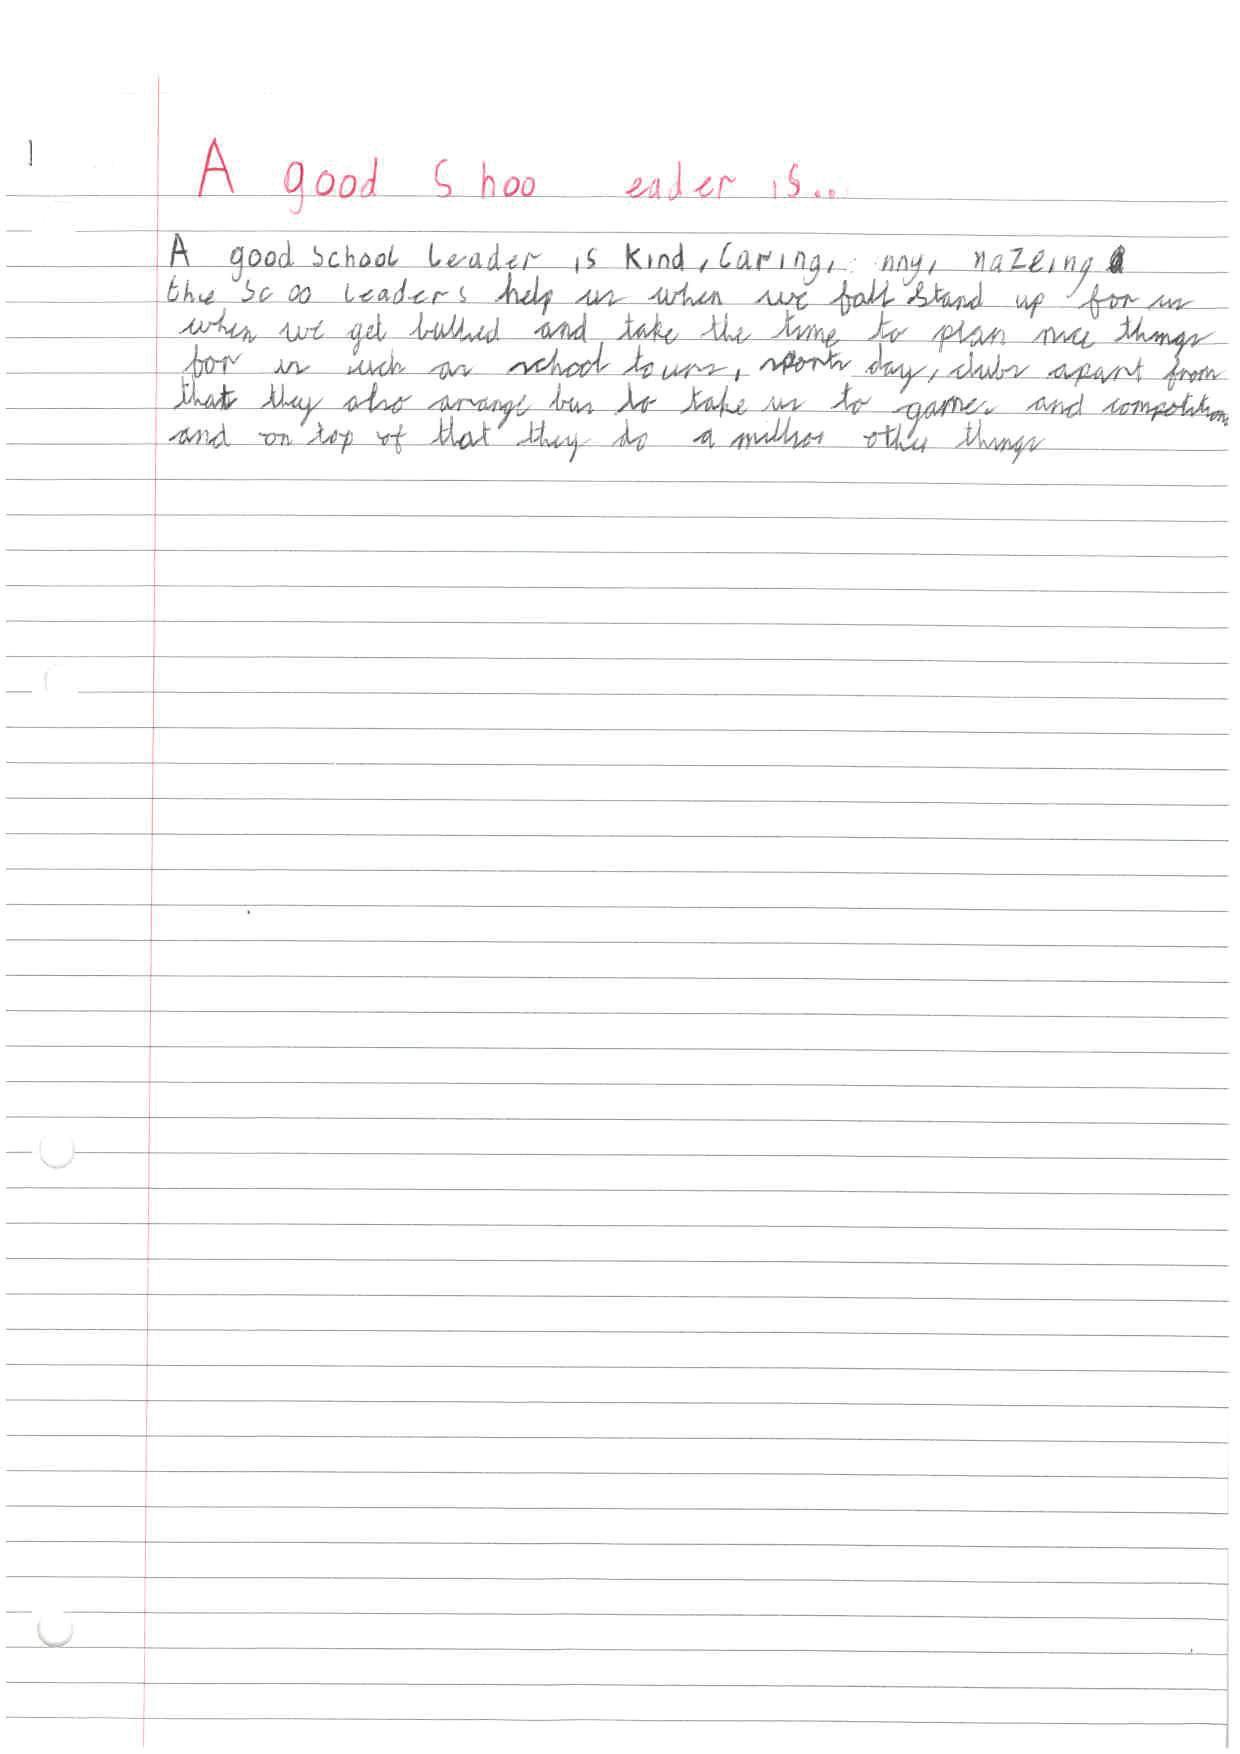 1
A good S hoo eader is...
A good school leader is kind, caring, nny, nazeing
the sc oo leaders help us when we fall stand up for us
when we get bullied and take the time to plan nice things
for us such as school tours, sports day, clubs apart from
that they also arange bus to take us to games and competition
and on top of that they do a million other things